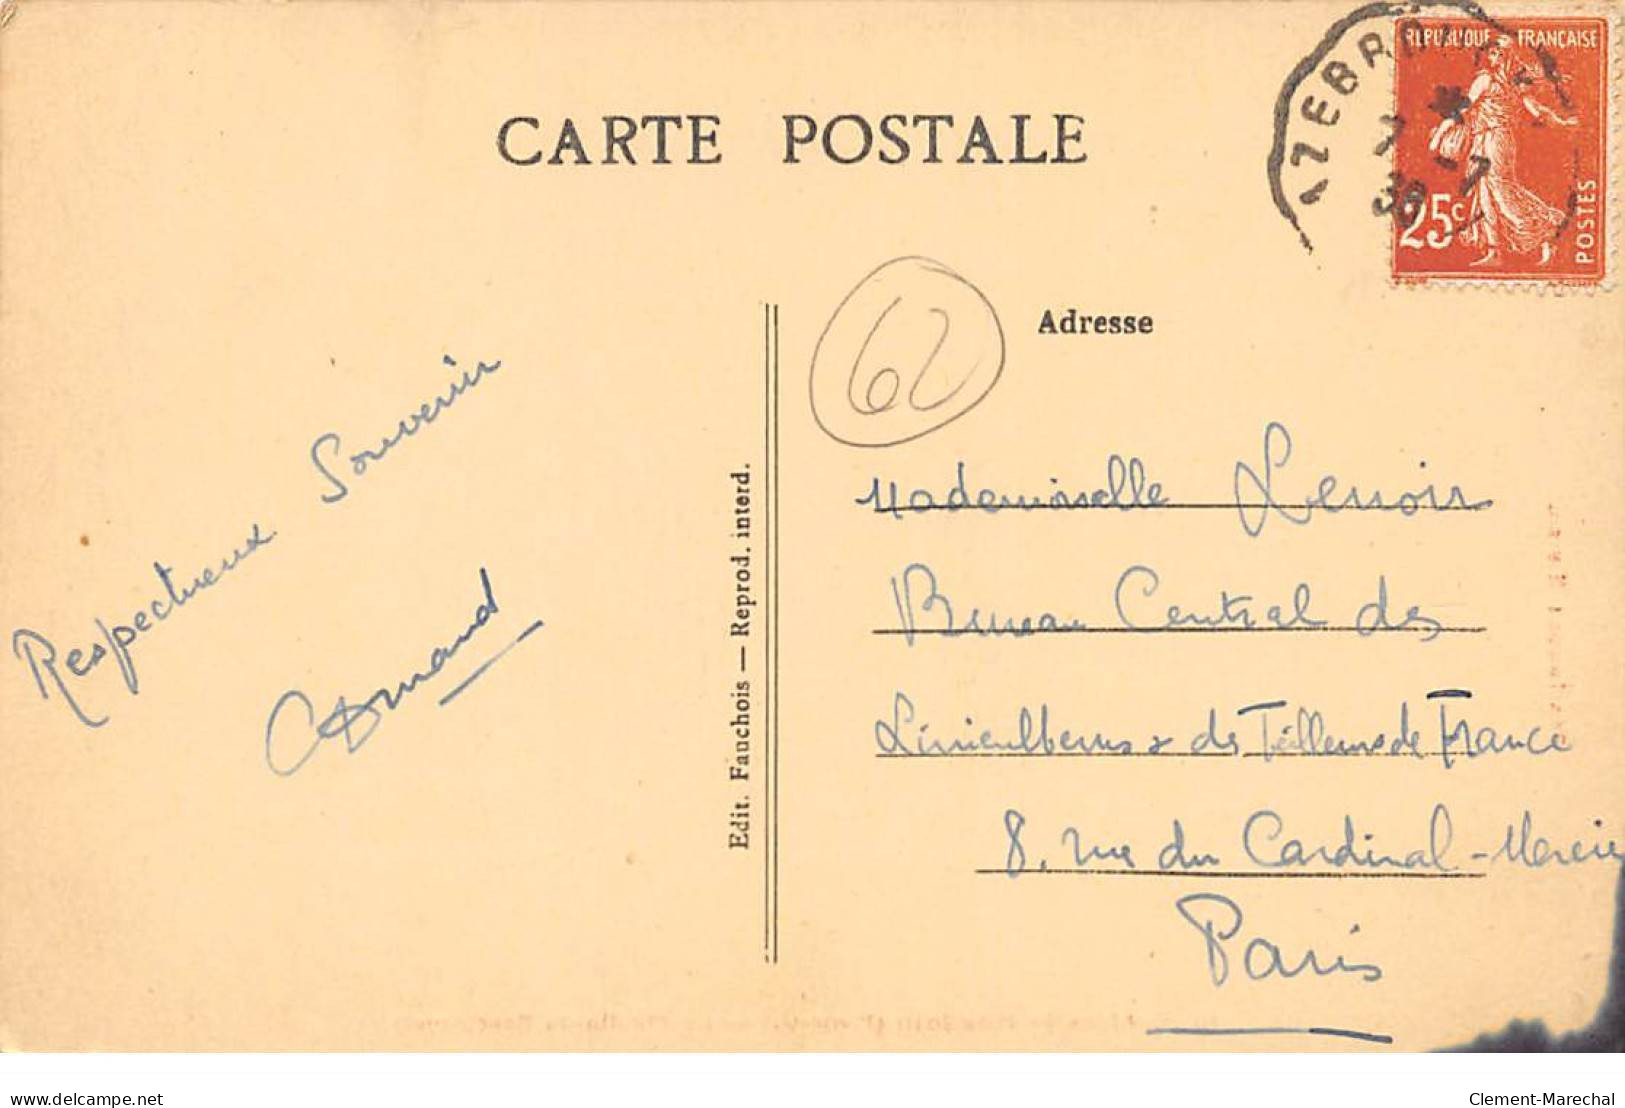 CARTE POSTALE
AZEBROU
7 -7
38
REPUBLIQUE FRANÇAISE
25c
POSTES
62
Adresse
Respectueux Souvenir
Armand
Edit. Fauchois — Reprod. interd.
Mademoiselle Lenoir
Bureau Central des
Liniculteurs & des Teilleurs de France
8, rue du Cardinal-Mercier
Paris
www.delcampe.net
Clement-Marechal